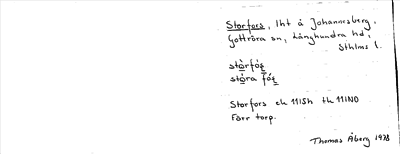 Storfors, lht å Johannesberg,
Gottröra sn, Långhundra hd,
Sthlms l.
stòrfóṣ
stòra fóṣ
Storfors ek 11I5h tk 11INO
Förr torp.
Thomas Åberg 1978